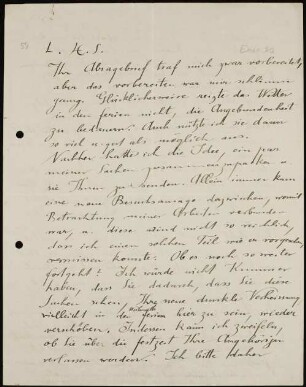 L. H. S.
Ihr Absagebrief traf mich zwar vorbereitet,
aber das vorbereiten war nur schlimm
genug. Glücklicherweise reizte das Wetter
in den ferien nicht, die Angebundenheit
zu bedauern. Auch nützte ich sie dann
so viel u. gut als möglich aus.
Nachher hatte ich die Idee, ein paar
meiner Sachen zusammenzupacken u
sie Ihnen zu senden. Allein immer kam
eine neue Besuchsansage dazwischen, womit
Betrachtung meiner Arbeiten verbunden
war, u. diese sind nicht so reichlich,
dass ich einen solchen Teil wie er vorgesehen,
vermissen konnte. Ob es noch so weiter
fortgeht? Ich würde nicht Kummer
haben, dass Sie dadurch, dass Sie diese
Sachen sehen, Ihre neue dunkle Verheissung
vielleicht in den ferien hier zu sein, wieder
verschöben. Indessen kann ich zweifeln,
ob Sie über die festzeit Ihre Angehörigen
verlassen werden? Ich bitte daher